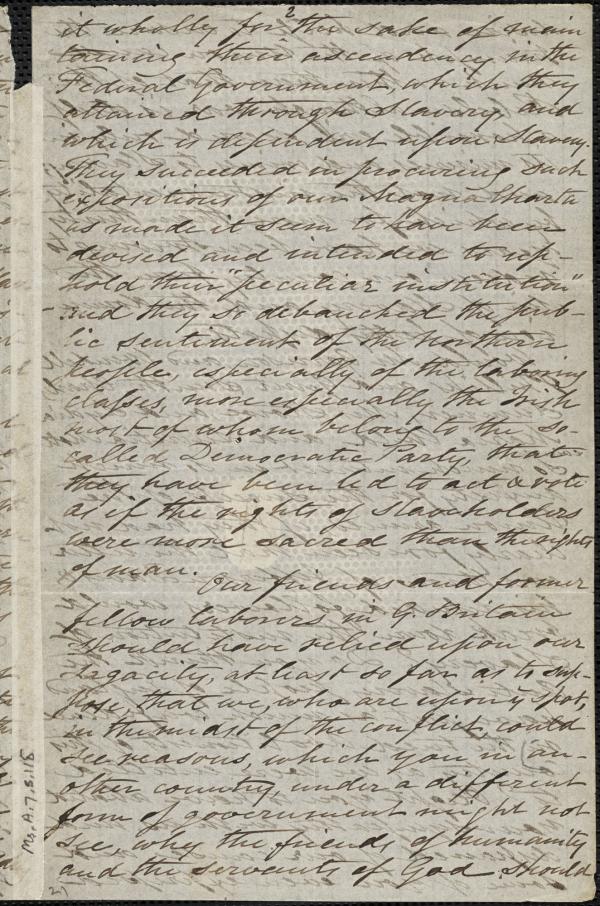 2
it wholly for the sake of main
taining their ascendency in the
Federal Government, which they
attained through Slavery, and
which is dependent upon Slavery.
They succeeded in procuring such
expositions of our Magna Charta
as made it seem to have been
devised and intended to up-
hold their "peculiar institution"
and they so debauched the pub-
lic sentiment of the Northern
people, especially of the laboring
classes, more especially the Irish
most of whom belong to the so-
called Democratic Party, that
they have been led to act & vote
as if the rights of slaveholders
were more sacred than the rights
of man.
Our friends and former
fellow laborers in G. Britain
should have relied upon our
sagacity, at least so far as to sup-
pose, that we, who are upon ye spot,
in the midst of the conflict, could
see reasons, which you in (an-
other country, under a different
form of government might not
see, why the friends of humanity
and the servants of God should
Ms.A.7.3.118
2)